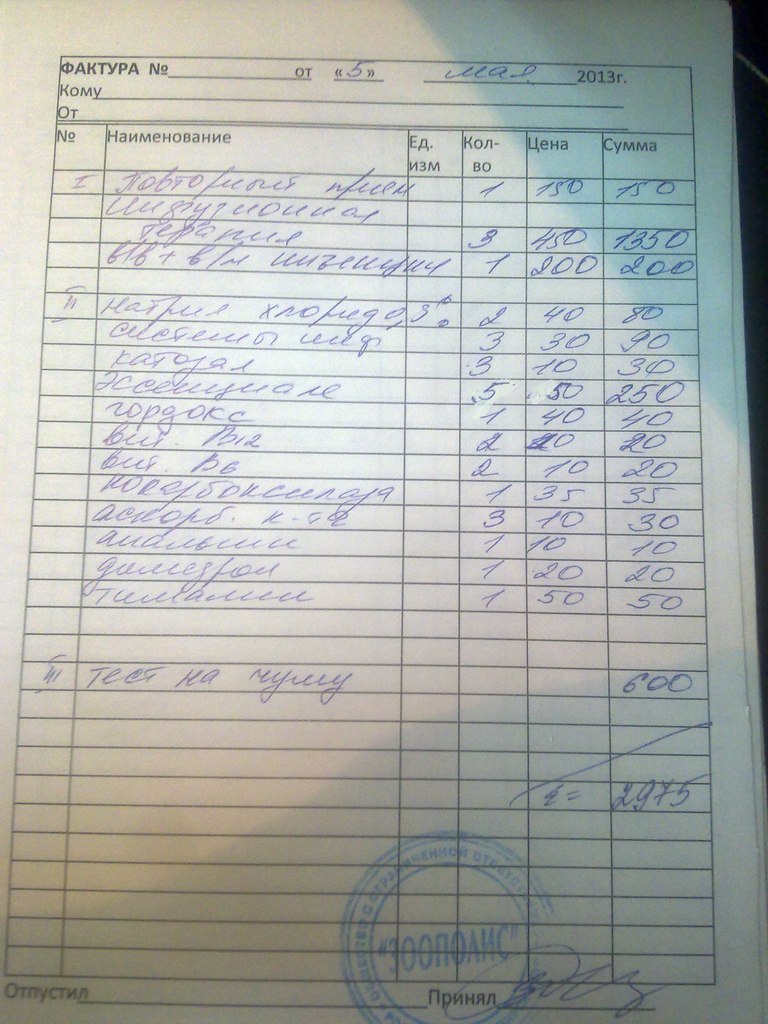 ФАКТУРА № от «5» мая 2013г.
Кому
От
№ Наименование Ед. изм Кол-во Цена Сумма
I Повторный прием 1 150 150
Инфузионная
терапия 3 450 1350
в/в + в/м инъекции 1 200 200
II натрия хлорид 0,9% 2 40 80
системы инф 3 30 90
катозал 3 10 30
эссенциале 5 50 250
гордокс 1 40 40
вит. В12 2 20
вит. В6 2 10 20
кокарбоксилаза 1 35 35
аскорб. к-та 3 10 30
анальгин 1 10 10
димедрол 1 20 20
тималин 1 50 50
III тест на чуму 600
2975
ОБЩЕСТВО С ОГРАНИЧЕННОЙ
"ЗООПОЛИС"
Отпустил Принял